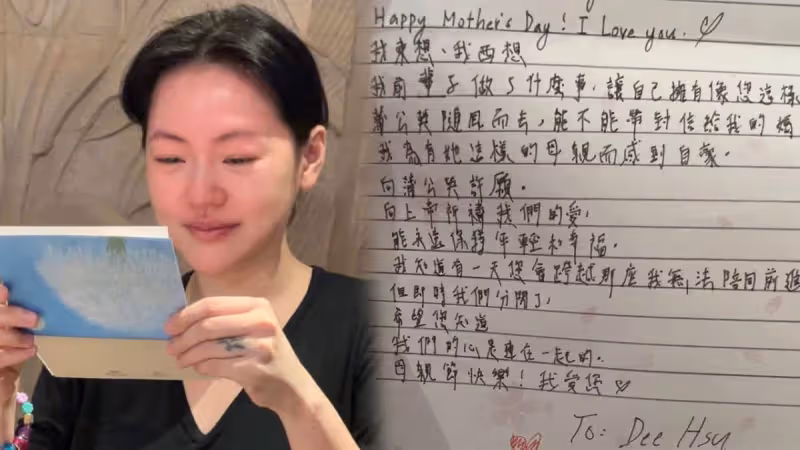 Happy Mother's Day! I Love you. ♡
我東想、我西想
我前輩子做了什麼事，讓自己擁有像您這樣
蒲公英隨風而去，能不能帶封信給我的媽
我為有她這樣的母親而感到自豪。
向蒲公英許願。
向上帝祈禱我們的愛，
能永遠保持年輕和幸福。
我知道有一天您會跨越那座我無法陪同前進
但即時我們分開了，
希望您知道
我們的心是連在一起的。
母親節快樂！我愛您♡
To: Dee Hsu